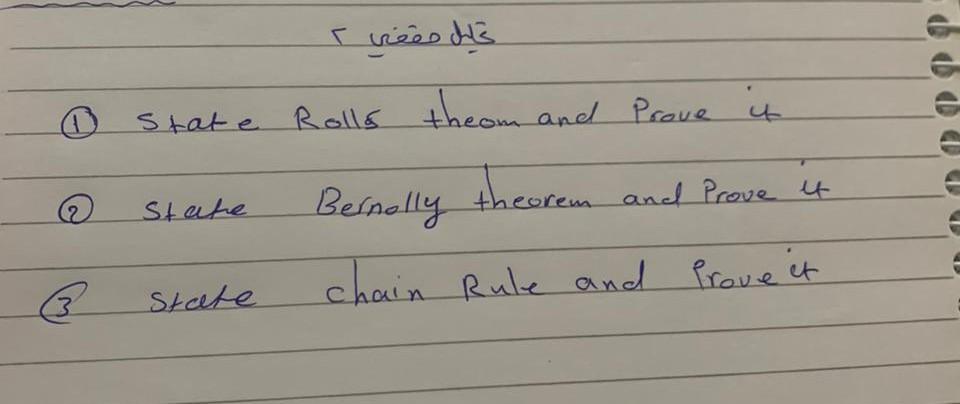 ① State Rolls theom and Prove it
② State Bernolly theorem and Prove it
③ State chain Rule and Prove it